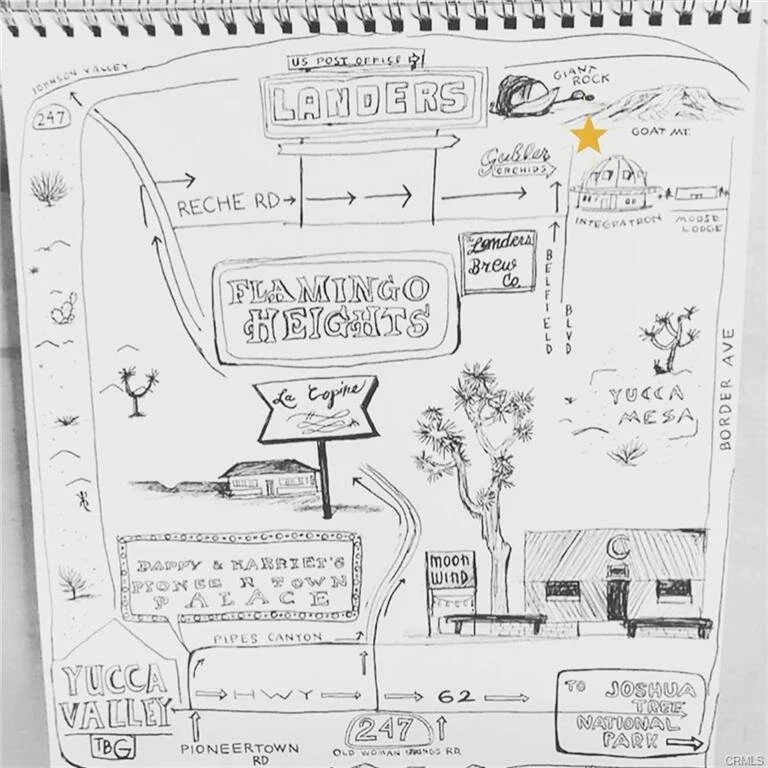 US POST OFFICE
JOHNSON VALLEY
247
LANDERS
GIANT
ROCK
GOAT MT.
Gubler
ORCHIDS
RECHE RD
INTEGRATRON
MOOSE
LODGE
The Landers
Brew
Co
BELFIELD
BLVD
FLAMINGO
HEIGHTS
La Copine
YUCCA
MESA
BORDER AVE
PAPPY & HARRIET'S
PIONEERTOWN
PALACE
moon
WIND
PIPES CANYON
YUCCA
VALLEY
TBG
HWY 62
PIONEERTOWN
RD
247
OLD WOMAN SPRINGS RD.
TO JOSHUA
TREE
NATIONAL
PARK
CRMLS